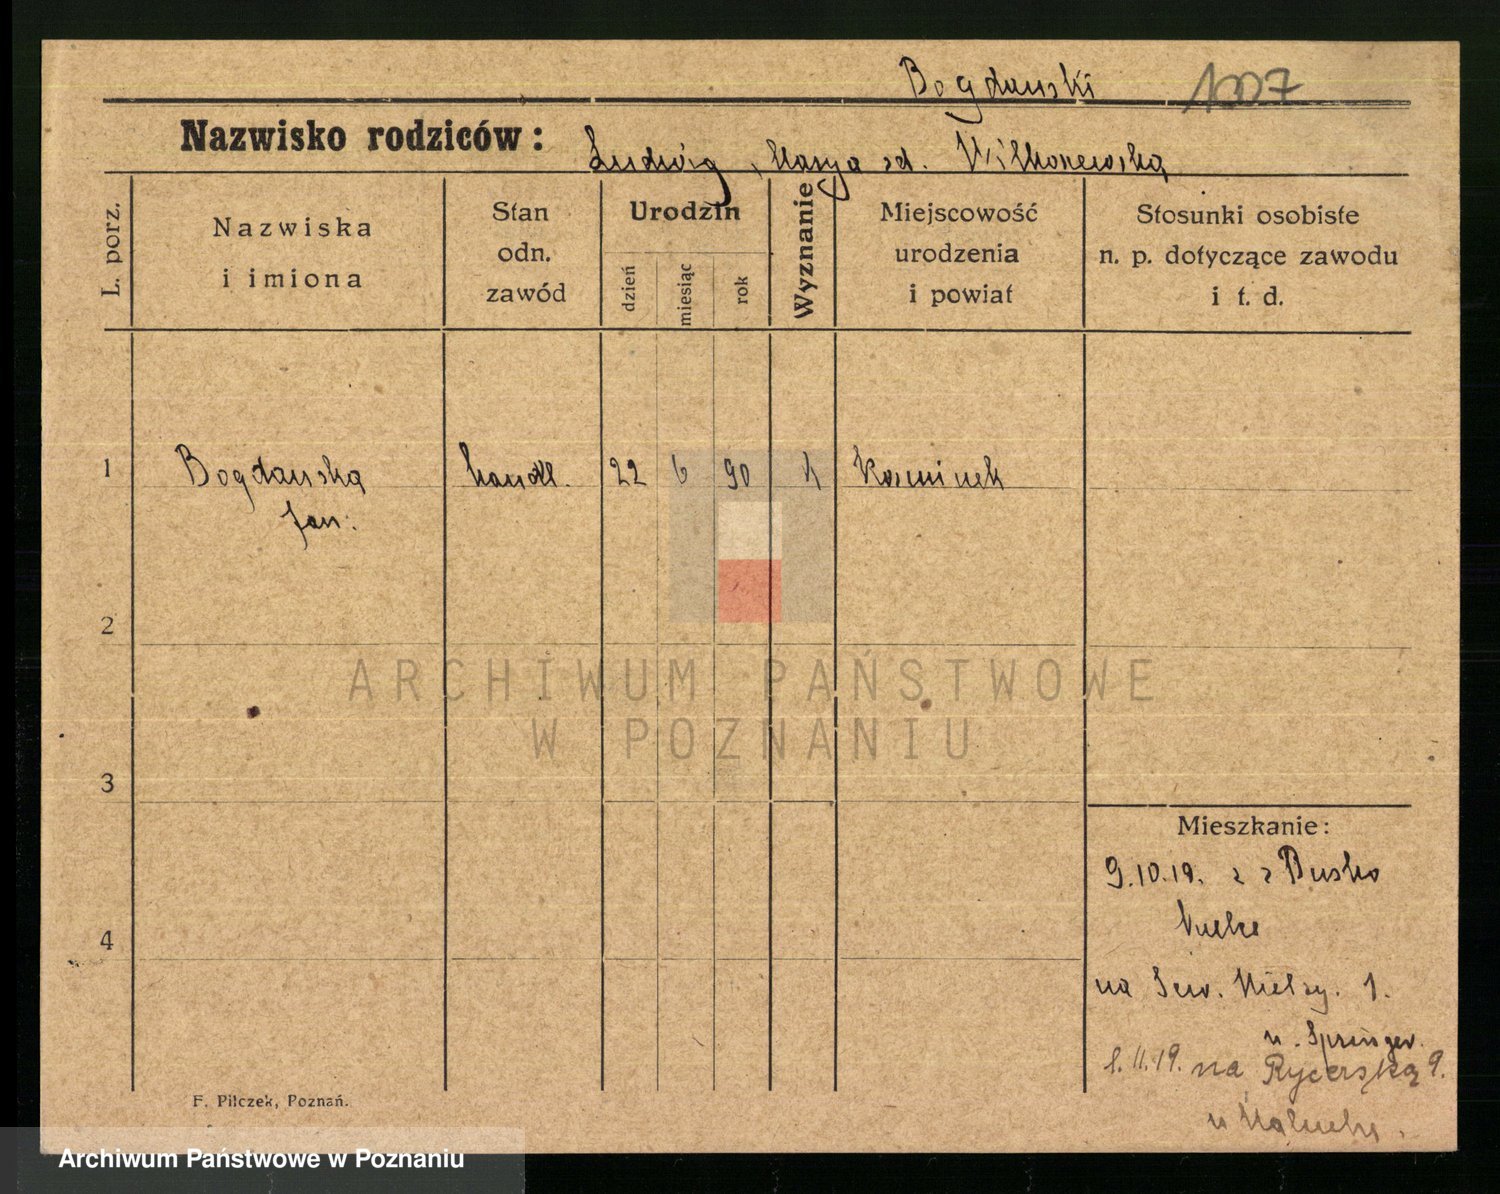 Bogdanski 1307
Nazwisko rodziców: Ludwig, Marya zd. Wilkonewska
L. porz.
Nazwiska
i imiona
Stan
odn.
zawód
Urodzin
dzień
miesiąc
rok
Wyznanie
Miejscowość
urodzenia
i powiat
Stosunki osobiste
n. p. dotyczące zawodu
i t. d.
1 Bogdanska handl. 22 6 90 k Kaminek
Jan.
2
ARCHIWUM PAŃSTWOWE
W POZNANIU
3
Mieszkanie:
9.10.19. z Busko
4
na Sew. Mielzy. 1.
u. Springer.
1.11.19. na Rycerską 9.
F. Pilczek, Poznań.
u
Archiwum Państwowe w Poznaniu